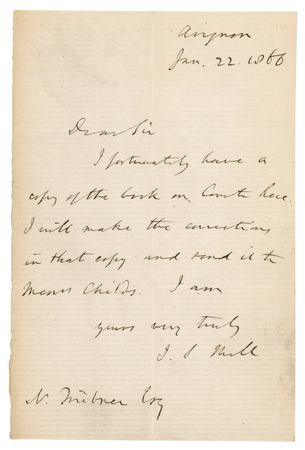 Avignon
Jan. 22. 1866
Dear Sir
I fortunately have a
copy of the book on Comte here.
I will make the corrections
in that copy and send it to
Messrs Childs. I am
yours very truly
J. S. Mill
N. Trübner Esq